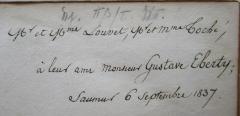 Mr et Mme Louvet, Mr et Mme Toché,
à leur ami monsieur Gustave Eberty,
Saumur 6 Septembre 1837.